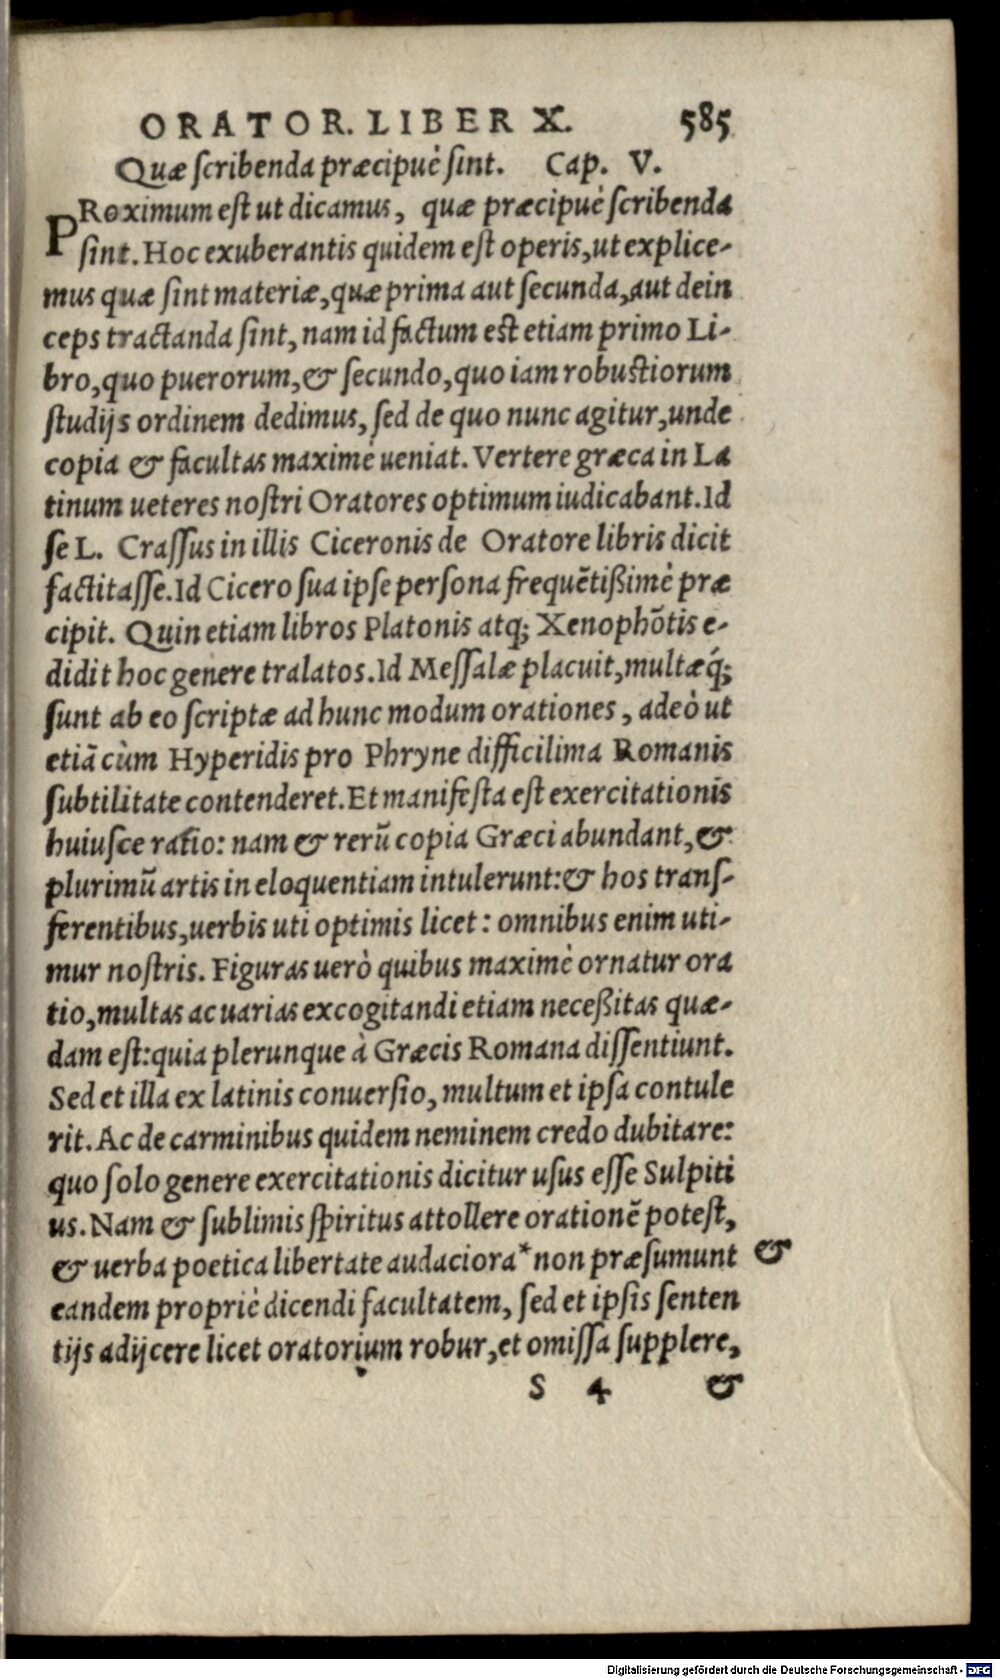 ORATOR. LIBER X. 585
Quæ ſcribenda præcipuè ſint. Cap. V.
PRoximum eſt ut dicamus, quæ præcipuè ſcribenda
ſint. Hoc exuberantis quidem eſt operis, ut explice-
mus quæ ſint materiæ, quæ prima aut ſecunda, aut dein
ceps tractanda ſint, nam id factum est etiam primo Li-
bro, quo puerorum, & ſecundo, quo iam robustiorum
ſtudijs ordinem dedimus, ſed de quo nunc agitur, unde
copia & facultas maximè ueniat. Vertere græca in La
tinum ueteres noſtri Oratores optimum iudicabant. Id
ſe L. Craſſus in illis Ciceronis de Oratore libris dicit
factitaſſe. Id Cicero ſua ipſe perſona frequẽtißimè præ
cipit. Quin etiam libros Platonis atq; Xenophõtis e-
didit hoc genere tralatos. Id Meſſalæ placuit, multæq́;
ſunt ab eo ſcriptæ ad hunc modum orationes, adeò ut
etiã cùm Hyperidis pro Phryne difficilima Romanis
ſubtilitate contenderet. Et manifeſta eſt exercitationis
huiuſce ratio: nam & rerũ copia Græci abundant, &
plurimũ artis in eloquentiam intulerunt: & hos tranſ-
ferentibus, uerbis uti optimis licet: omnibus enim uti-
mur noſtris. Figuras uerò quibus maximè ornatur ora
tio, multas ac uarias excogitandi etiam neceßitas quæ-
dam eſt: quia plerunque à Græcis Romana diſſentiunt.
Sed et illa ex latinis conuerſio, multum et ipſa contule
rit. Ac de carminibus quidem neminem credo dubitare:
quo ſolo genere exercitationis dicitur uſus eſſe Sulpiti
us. Nam & ſublimis ſpiritus attollere orationẽ poteſt,
& uerba poetica libertate audaciora* non præſumunt &
eandem propriè dicendi facultatem, ſed et ipſis ſenten
tijs adijcere licet oratorium robur, et omiſſa ſupplere,
S 4 &
Digitalisierung gefördert durch die Deutsche Forschungsgemeinschaft - DFG